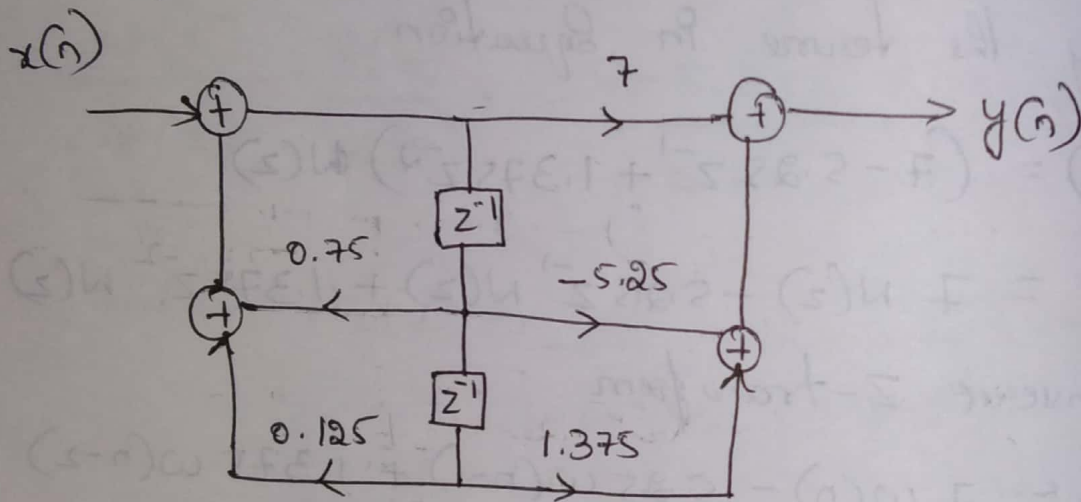 x(n)
7
+
+
y(n)
z⁻¹
0.75
-5.25
+
+
z⁻¹
0.125
1.375